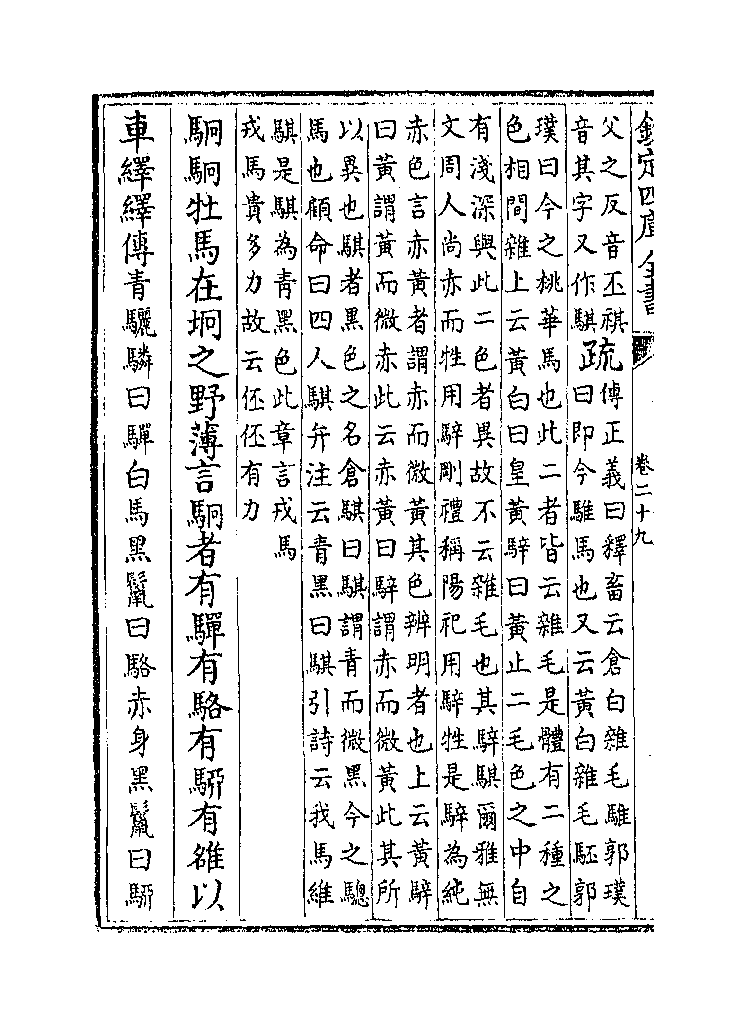 欽定四庫全書
卷二十九
父之反音丕祺
音其字又作騏
疏
傳正義曰釋畜云倉白雜毛騅郭璞
曰即今騅馬也又云黃白雜毛駓郭
璞曰今之桃華馬也此二者皆云雜毛是體有二種之
色相間雜上云黃白曰皇黃騂曰黃止二毛色之中自
有淺深與此二色者異故不云雜毛也其騂騏爾雅無
文周人尚赤而牲用騂剛禮稱陽祀用騂牲是騂為純
赤色言赤黃者謂赤而微黃其色辨明者也上云黃騂
曰黃謂黃而微赤此云赤黃曰騂謂赤而微黃此其所
以異也騏者黑色之名倉騏曰騏謂青而微黑今之驄
馬也顧命曰四人騏弁注云青黑曰騏引詩云我馬維
騏是騏為青黑色此章言戎馬
戎馬貴多力故云伾伾有力
駉駉牡馬在坰之野薄言駉者有驒有駱有駵有雒以
車繹繹傳青驪驎曰驒白馬黑鬛曰駱赤身黑鬛曰駵